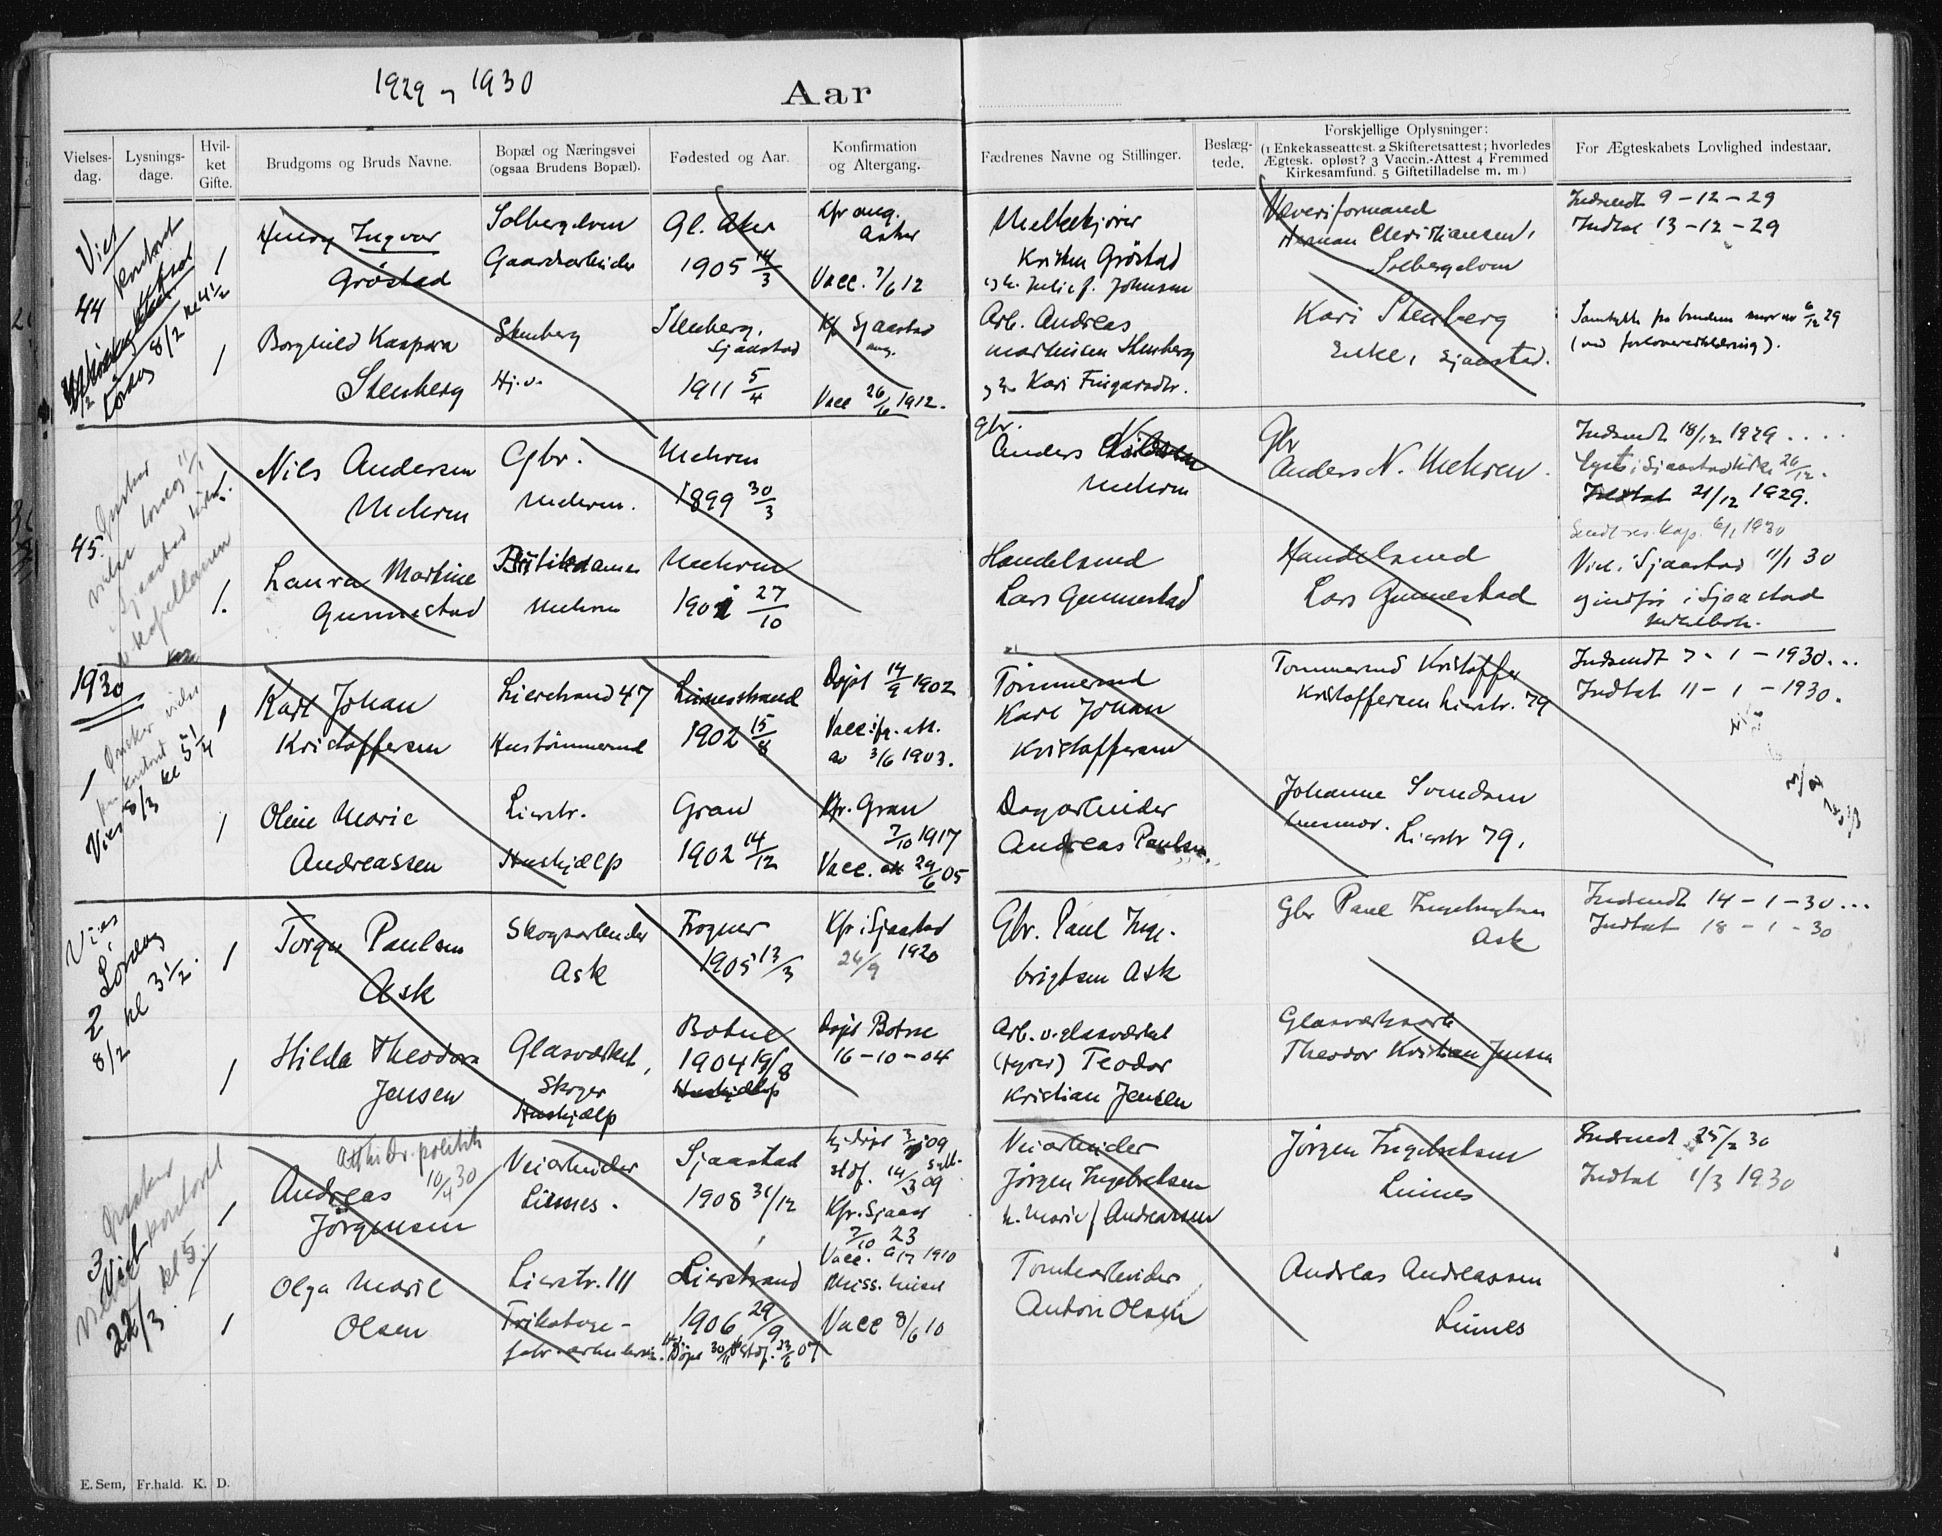 1929 – 1930
Aar
Vielses-
dag.
Lysnings-
dage.
Hvil-
ket
Gifte.
Brudgoms og Bruds Navne.
Bopæl og Næringsvei
(ogsaa Brudens Bopæl).
Fødested og Aar.
Konfirmation
og Altergang.
Fædrenes Navne og Stillinger.
Beslæg-
tede.
Forskjellige Oplysninger:
(1 Enkekasseattest. 2 Skifteretsattest; hvorledes
Ægtesk. opløst? 3 Vaccin.-Attest 4 Fremmed
Kirkesamfund. 5 Giftetilladelse m. m.)
For Ægteskabets Lovlighed indestaar.
Vies
kontoret
44
Lørdag 8/2 kl 4 1/2
1
Henry Ingvar
Grøstad
Solbergelven
Gaardsarbeider
Gl. Aker
1905 14/3
Kfr ang.
Asker
Vacc. 7/6 12
Melkekjører
Kristen Grøstad
Væveriformand
Herman Christiansen,
Solbergelven
Indsendt 9-12-29
Indtat 13-12-29
1
Borghild Kaspara
Stenberg
Stenberg
Hj.v.
Stenberg,
Sjaastad
1911 5/4
Kfr Sjaastad
ang.
Vacc 26/6 1912.
Arb. Andreas
Martinsen Stenberg
Kari Fingarsdtr.
Kari Stenberg
Enke, Sjaastad.
Samtykke fra brudens mor av 6/12 29
(ved forlovererklæring).
45.
Ønsker
vielse lørdag 11/1
i Sjaastad kirke.
v kapellanen
1.
Nils Andersen
Mehren
Gbr.
Mehren.
Mehren
1899 30/3
Gbr.
Anders Nilsen
Mehren
Gbr
Anders N. Mehren.
Indsendt 18/12 1929 . . . .
Lyst i Sjaastad kirke 26/12.
Indtat 21/12 1929.
Sendt res. kap. 6/1 1930
1.
Laura Martine
Gunnestad
Butikdame
Mehren
Mehren
1901 27/10
Handelsmd
Lars Gunnestad
Handelsmd
Lars Gunnestad
Viet i Sjaastad 11/1 30
og indfør i Sjaastad
1930
1
Ønsker vielse
paa kontoret
Vies 8/3 kl 5 1/4
1
Karl Johan
Kristoffersen
Lierstrand 47
Hustømmermd
Linnesstrand
1902 15/8
Døpt 14/9 1902
Vacc. ifg. att.
av 3/6 1903.
Tømmermd
Karl Johan
Kristoffersen
Tømmermd Kristoffer
Kristoffersen Lierstr. 79
Indsendt 7-1-1930...
Indtat 11-1-1930.
1
Oline Marie
Andreassen
Lierstr.
Hushjælp
Gran
1902 14/12
Kfr. Gran
7/10 1917
Vacc. 29/6 05
Dagarbeider
Andreas Paulsen.
Johanne Svendsen
husmor. Lierstr 79.
Vies
Lørdag
2
8/2 kl 3 1/2.
1
Torger Paulsen
Ask
Skogsarbeider
Ask
Frogner
1905 13/3
Kfr i Sjaastad
26/9 1920
Gbr. Paul Inge-
brigtsen Ask
Gbr Paul Ingebrigtsen
Ask
Indsendt 14-1-30...
Indtat 18-1-30
1
Hilda Theodora
Jensen
Glasværket,
Skoger
Hushjælp
Botne
1904 19/8
Hushjælp
Døpt Botne
16-10-04
Arb. v. glasværket
(fyrer) Teodor
Kristian Jensen
Glasværksarb
Theodor Kristian Jensen
Ønsker
vielse kontoret
3
Viet kl 5.
22/3
1
10/4 30
Andreas
Jørgensen
Veiarbeider
Linnes.
Sjaastad
1908 31/12
Hj.døpt 3/1 09
stdf. 14/3 09
Kfr. Sjaast
7/10 23
Vacc. 1910
Veiarbeider
Jørgen Ingebretsen
h. Marie f. Andreassen
Jørgen Ingebretsen
Linnes
Indsendt 25/2 30
Indtat 1/3 1930
1
Olga Marie
Olsen
Lierstr. 111
Trikotage-
fabr.arbeiderske.
Lierstrand
1906 29/9
Hj.
Døpt 30/11 stdf. 23/6 07
Vacc 8/6 10
Tomtearbeider
Anton Olsen
Andreas Andreassen
Linnes
E. Sem, Fr.hald. K. D.